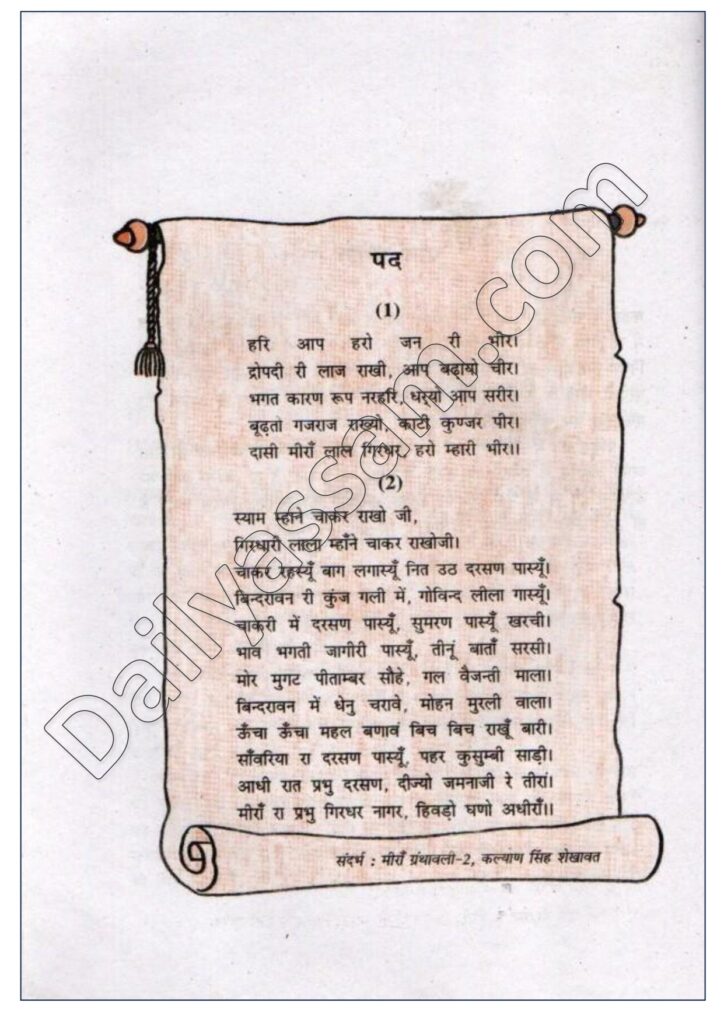 पद
(1)
हरि आप हरो जन री भीर।
द्रोपदी री लाज राखी, आप बढ़ायो चीर।
भगत कारण रूप नरहरि, धर्‌यो आप सरीर।
बूढ़तो गजराज राख्यो, काटी कुण्जर पीर।
दासी मीराँ लाल गिरधर, हरो म्हारी भीर।।
(2)
स्याम म्हाने चाकर राखो जी,
गिरधारी लाला म्हाँने चाकर राखोजी।
चाकर रहस्यूँ बाग लगास्यूँ नित उठ दरसण पास्यूँ।
बिन्दरावन री कुंज गली में, गोविन्द लीला गास्यूँ।
चाकरी में दरसण पास्यूँ, सुमरण पास्यूँ खरची।
भाव भगती जागीरी पास्यूँ, तीनूं बाताँ सरसी।
मोर मुगट पीताम्बर सौहे, गल वैजन्ती माला।
बिन्दरावन में धेनु चरावे, मोहन मुरली वाला।
ऊँचा ऊँचा महल बणावं बिच बिच राखूँ बारी।
साँवरिया रा दरसण पास्यूँ, पहर कुसुम्बी साड़ी।
आधी रात प्रभु दरसण, दीज्यो जमनाजी रे तीरां।
मीराँ रा प्रभु गिरधर नागर, हिवड़ो घणो अधीराँ।।
संदर्भ : मीराँ ग्रंथावली-2, कल्याण सिंह शेखावत
Dailyassam.com